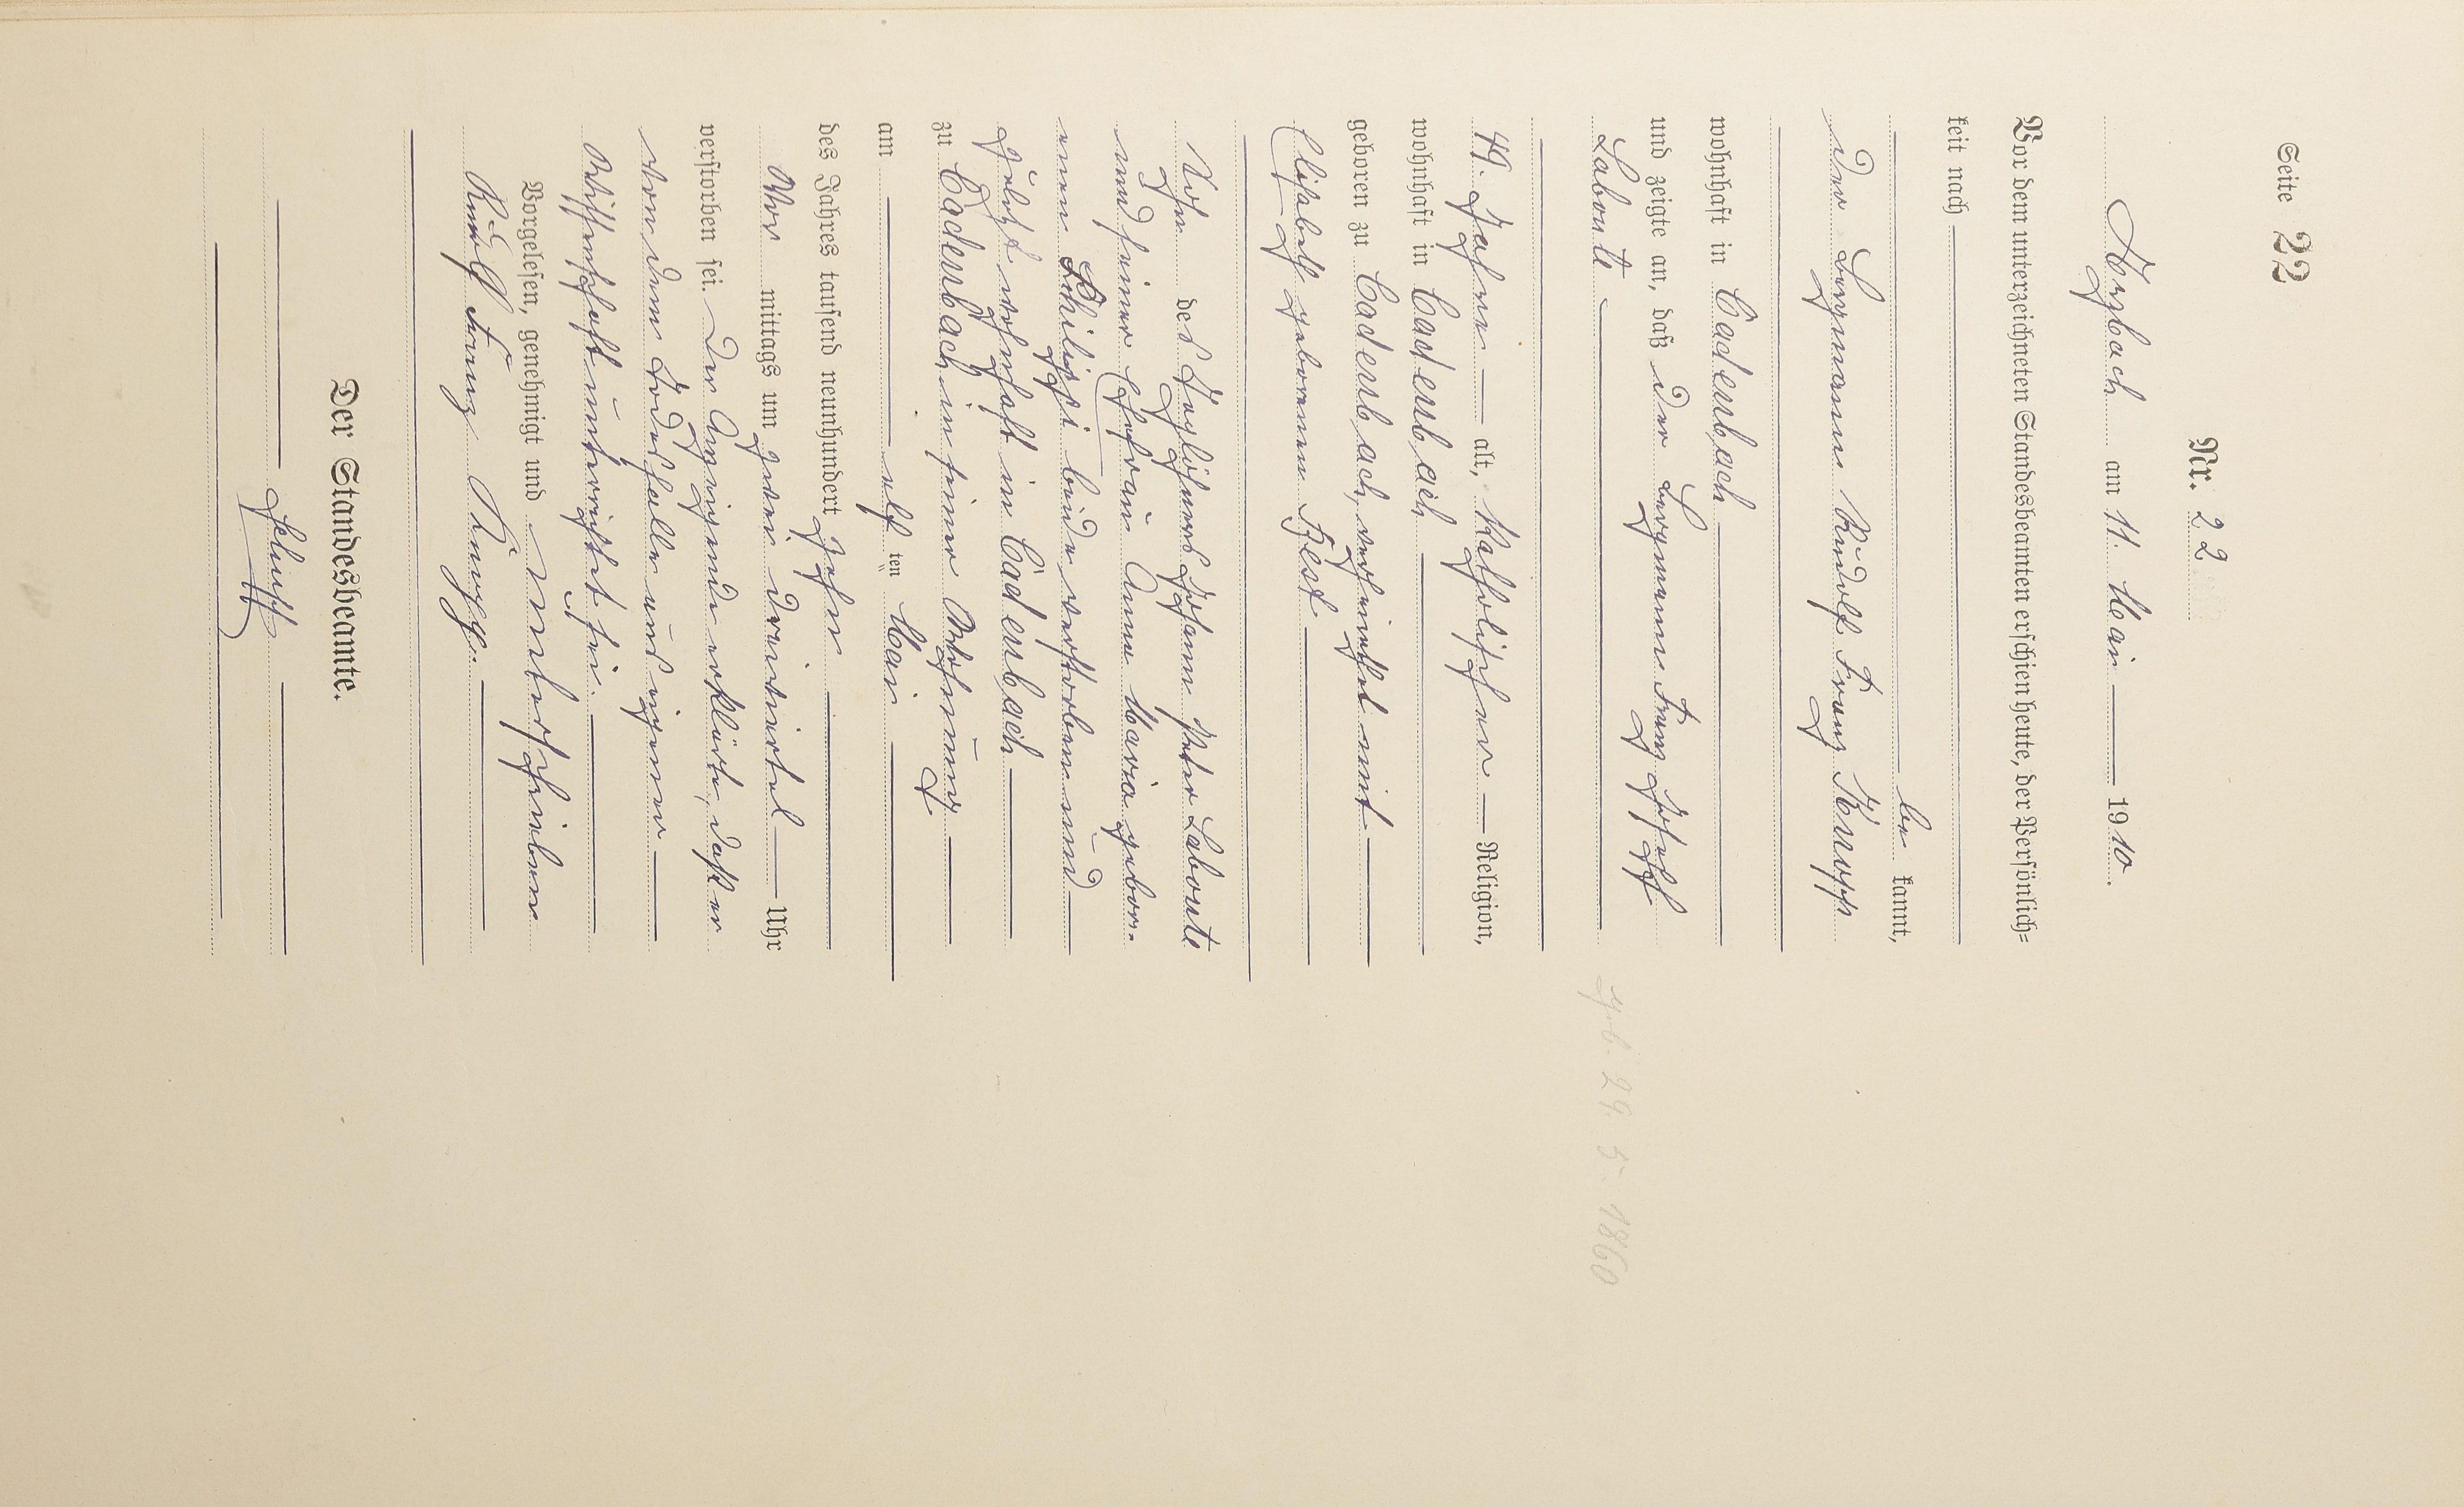 Seite 22
Nr. 22
Arzbach am 11. Mai 1910.
Vor dem unterzeichneten Standesbeamten erschien heute, der Persönlich=
keit nach
be kannt,
der Bergmann Rudolf Franz Knopp
wohnhaft in Cadenbach
und zeigte an, daß der Bergmann Franz Joseph
Labonte
49 Jahre alt, katholischer Religion,
wohnhaft in Cadenbach
geboren zu Cadenbach, verheirathet mit
Elisabeth geborenen
Sohn des Taglöhners Johann Peter Labonte
und seiner Ehefrau Anna Maria gebor-
enen beide verstorben und
zuletzt wohnhaft in Cadenbach
zu Cadenbach in seiner Wohnung
am elf ten Mai
des Jahres tausend neunhundert zehn
Vor mittags um zwei dreiviertel Uhr
verstorben sei. Der Anzeigende erklärte, daß er
von dem Todesfalle aus eigener
Wissenschaft unterrichtet sei.
Vorgelesen, genehmigt und unterschrieben
Rudolf Franz Knopp.
Der Standesbeamte.
geb. 29. 5. 1860